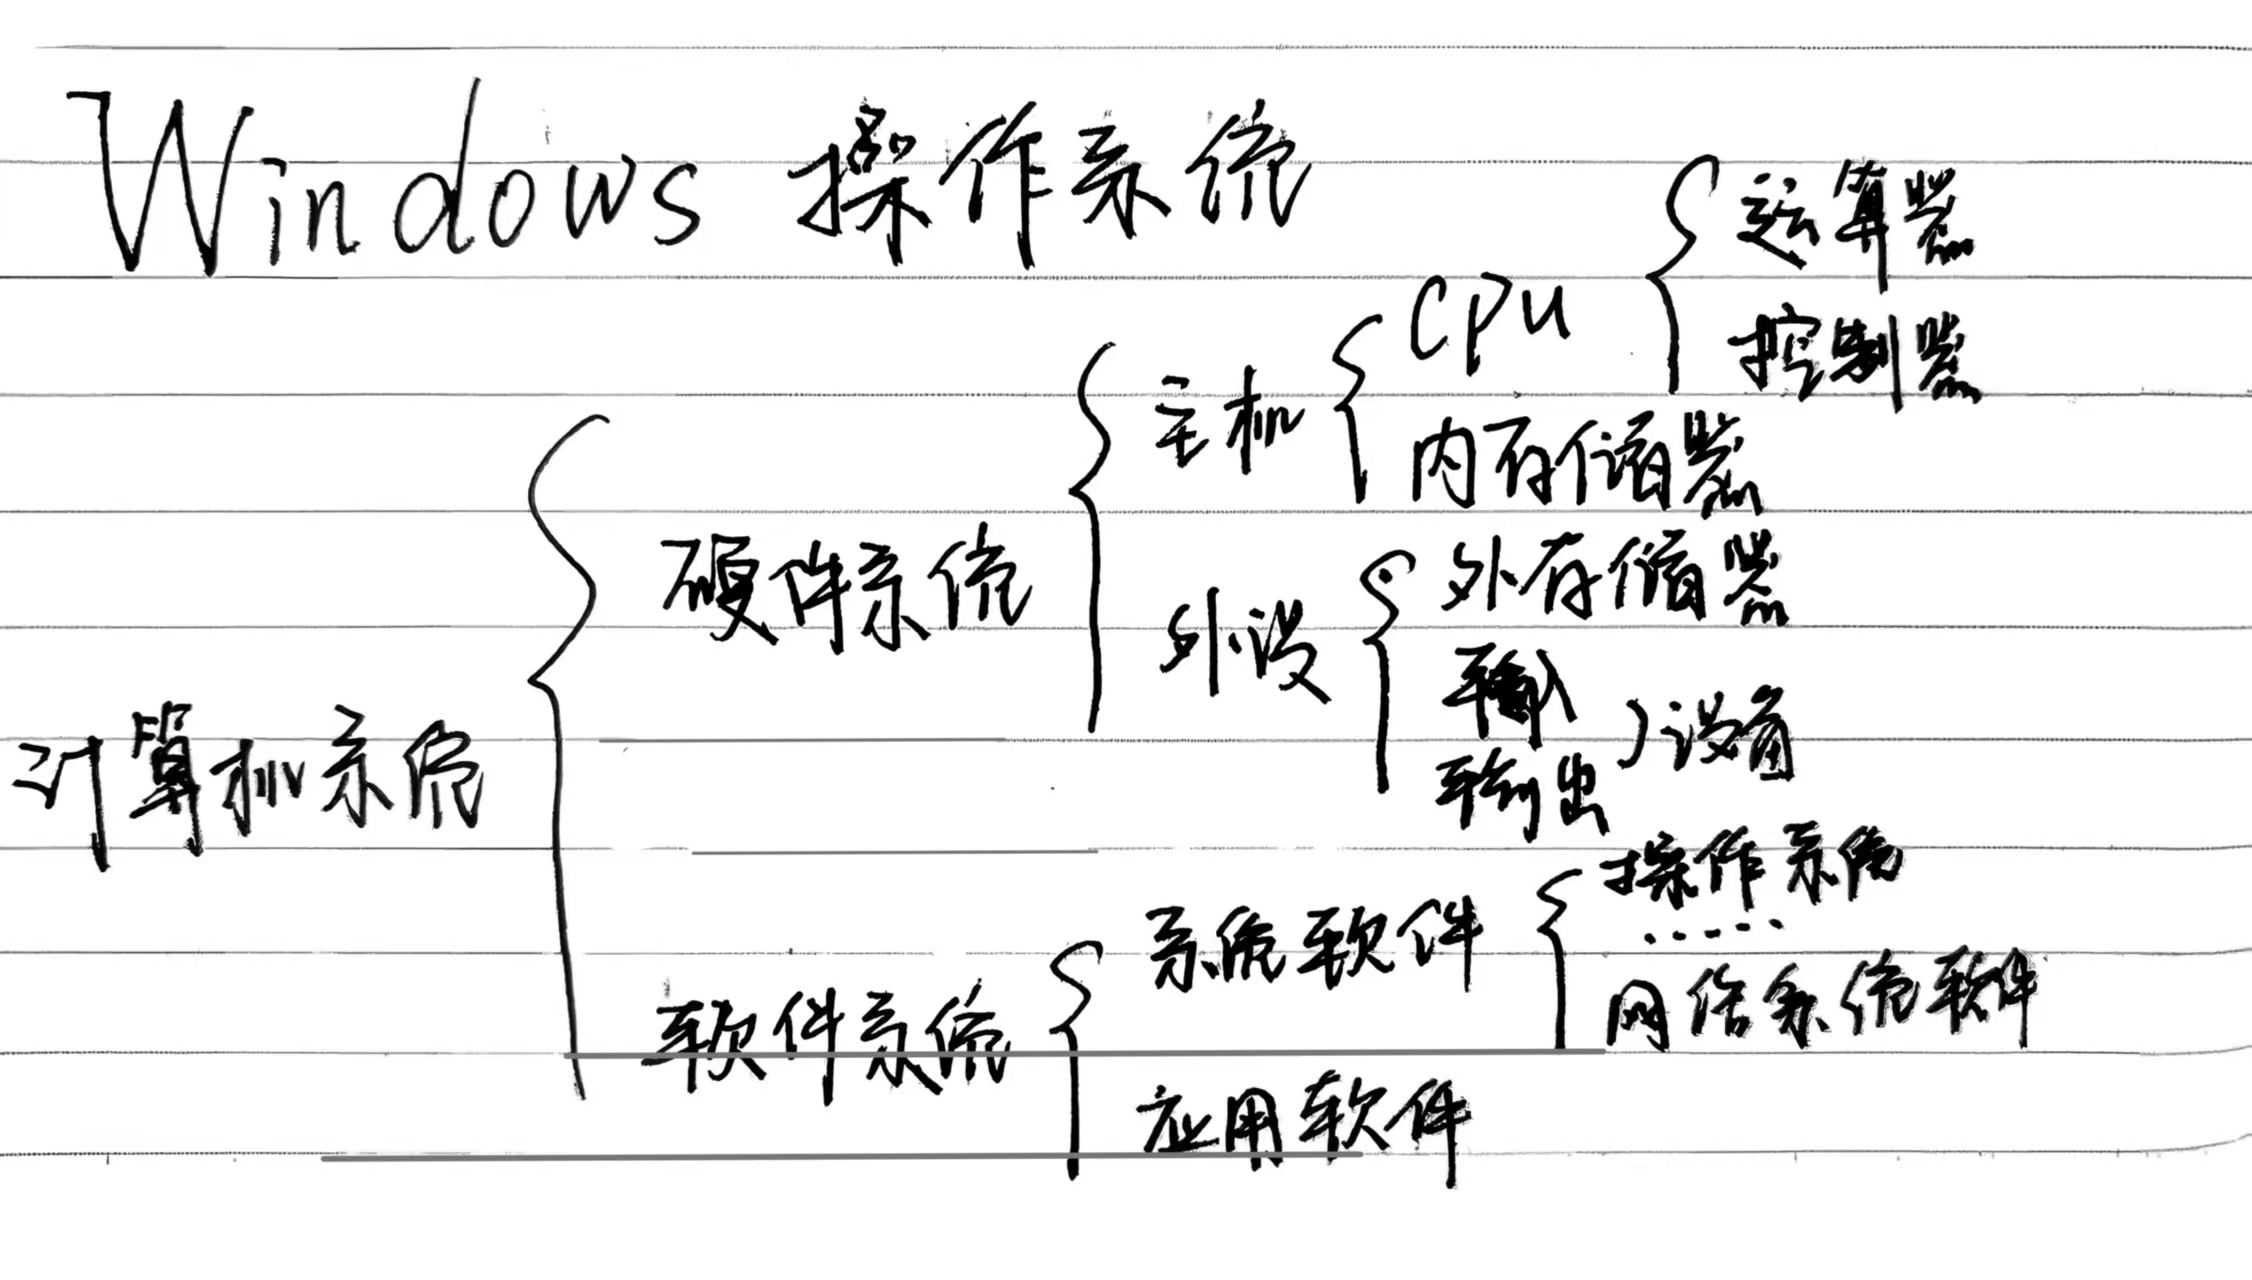 Windows 操作系统
运算器
CPU
控制器
主机
内存储器
硬件系统
外存储器
外设
输入
设备
计算机系统
输出
操作系统
系统软件
......
网络系统软件
软件系统
应用软件